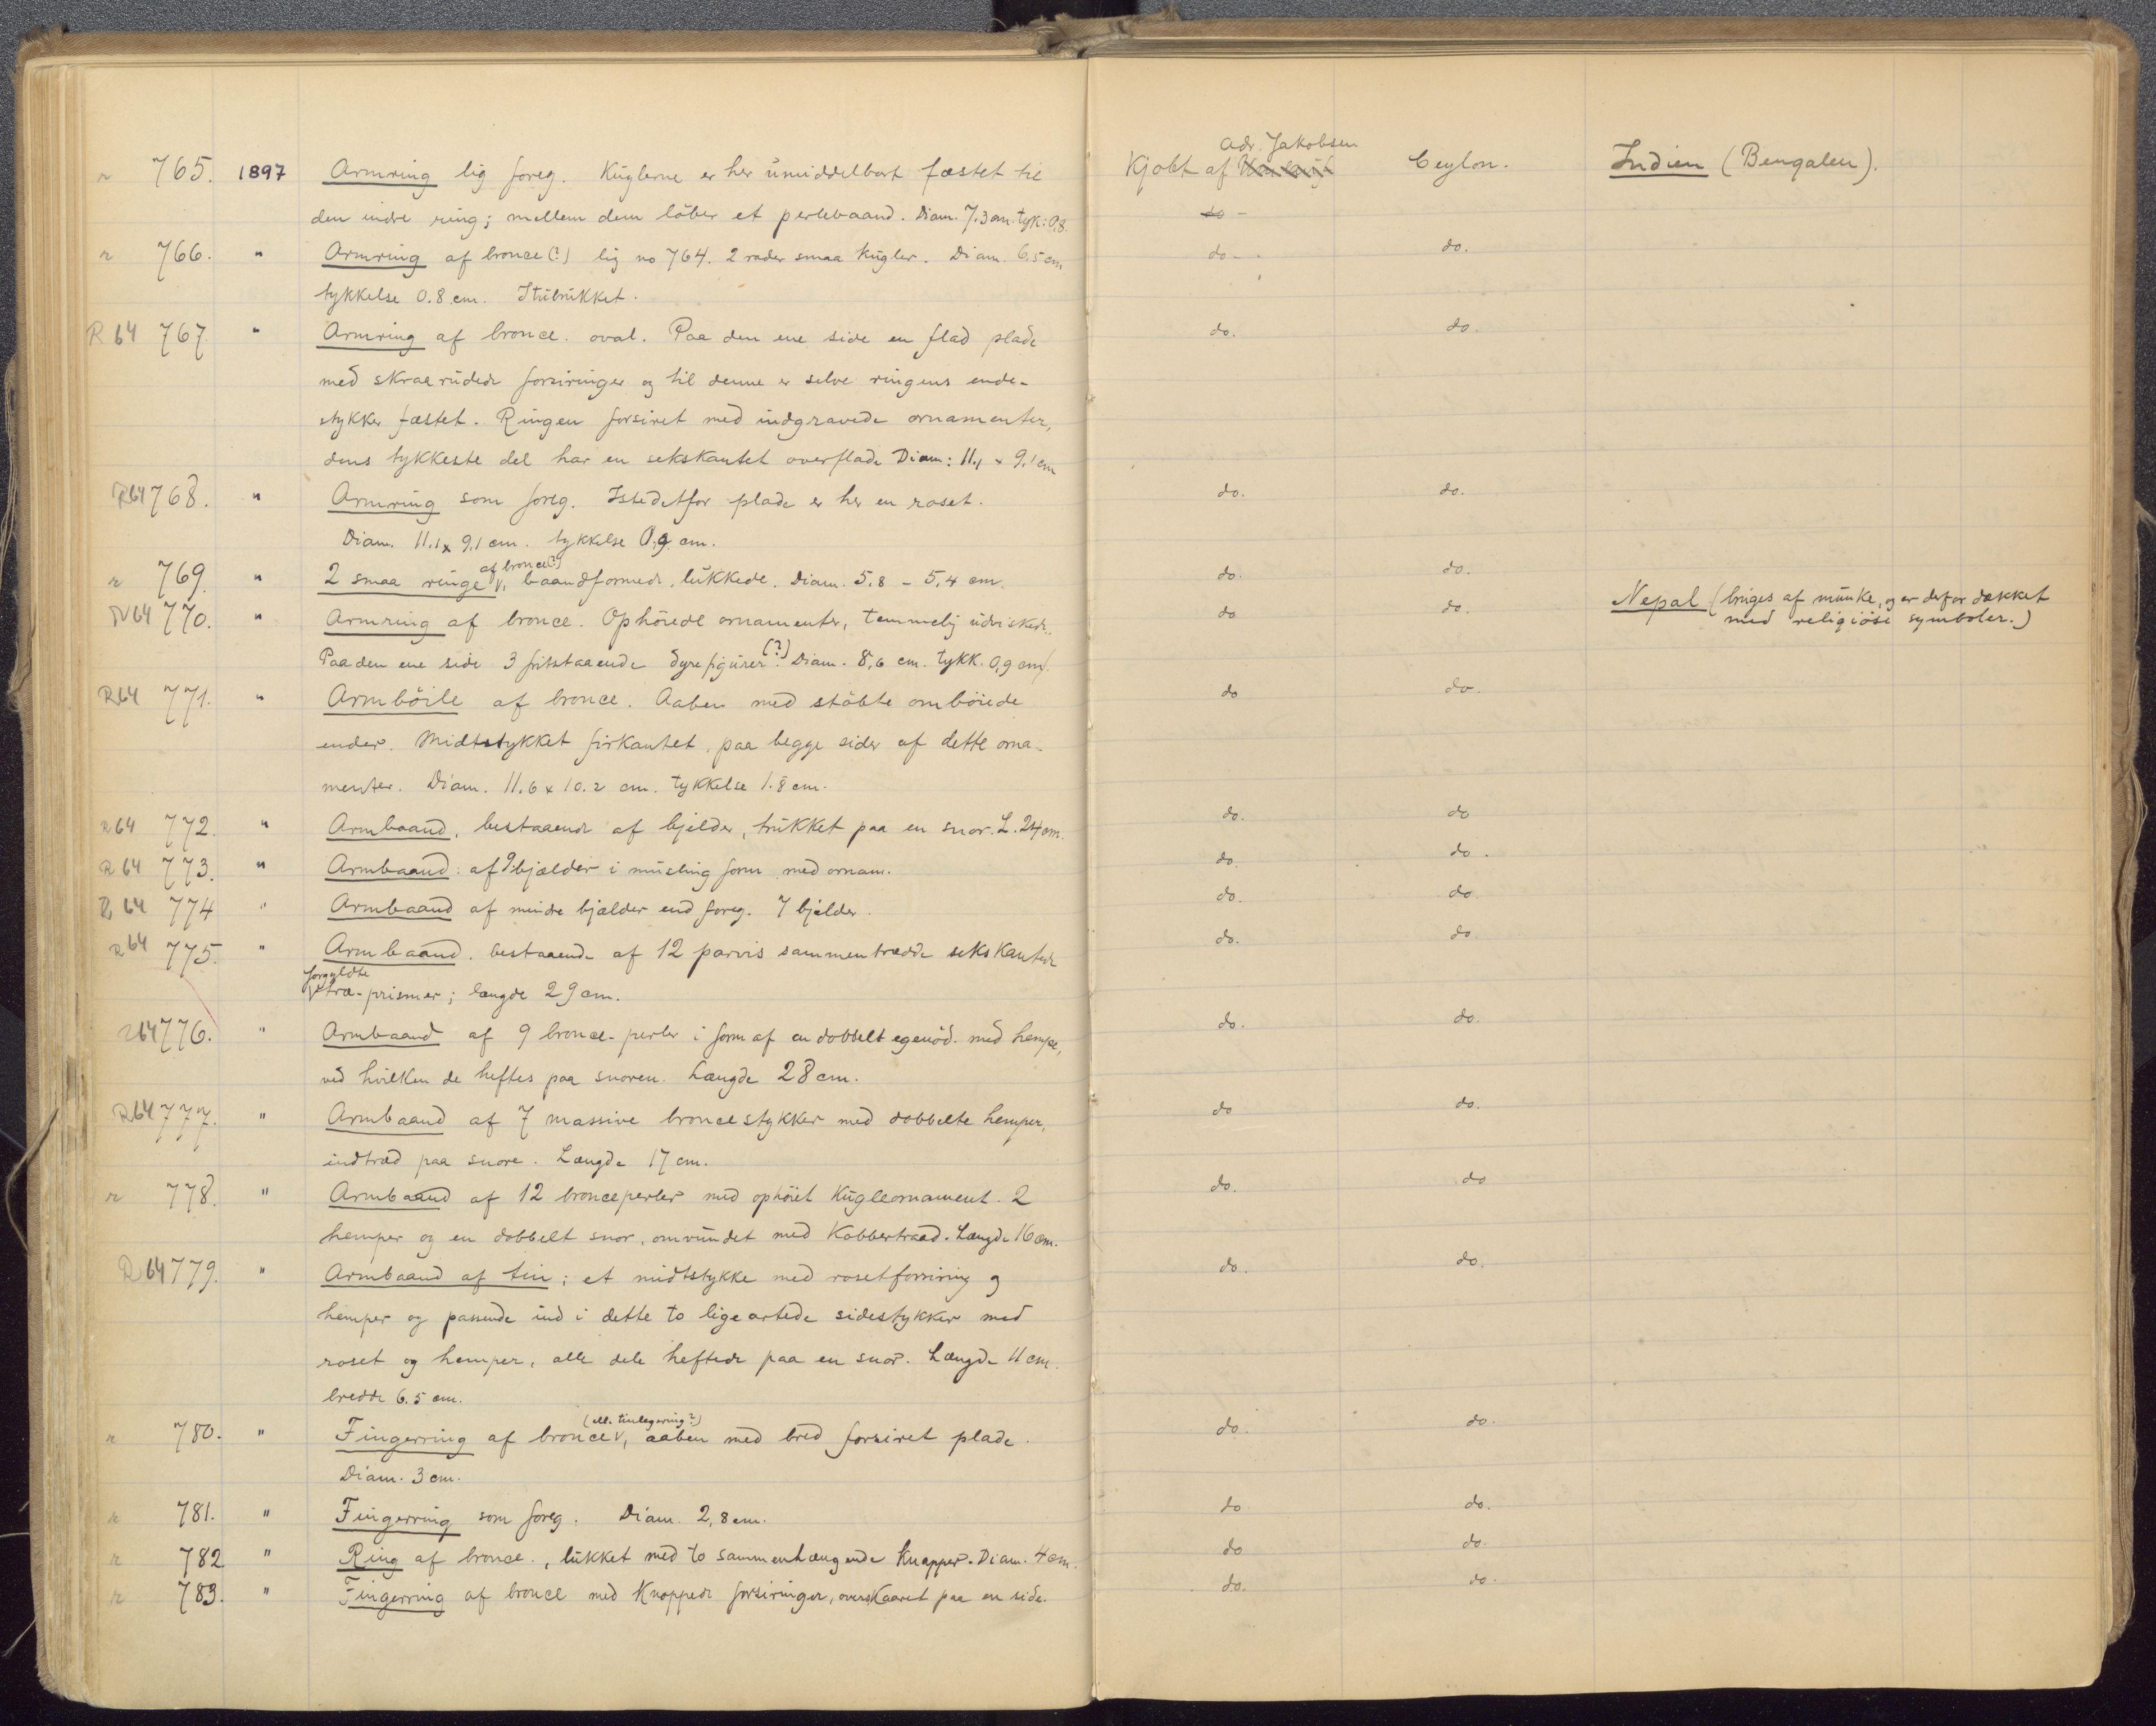 r 765. 1897 Armring lig foreg. Kuglerne er her ŭmiddelbart fæstet til
den indre ring; mellem dem löber et perlebaand. Diam. 7.3 cm. tyk: 0,8.
r 766. " Armring af bronce (?) lig no 764. 2 rader smaa Kŭgler. Diam. 6,5 cm
tykkelse 0.8 cm. Itŭbrŭkket.
R 64 767 " Armring af bronce. oval. Paa den ene side en flad plade
med skraarŭdede forsiringer og til denne er selve ringens ende-
stykker fæstet. Ringen forsiret med indgravede ornamenter,
dens tykkeste del har en sekskantet overflade Diam: 11,1 x 9,1 cm
R64 768. " Armring som foreg. Istedetfor plade er her en roset.
Diam. 11,1 x 9,1 cm. tykkelse 0,9 cm.
af bronce(?)
r 769. " 2 smaa ringe, baandformede, lŭkkede. Diam. 5,8 - 5,4 cm.
R64 770. " Armring af bronce. Ophöiede ornamenter, temmelig ŭdviskede.
Paa den ene side 3 fritstaaende dyrefigŭrer (?). Diam. 8,6 cm. tykk. 0,9 cm.
R64 771. " Armböile af bronce. Aaben med stöbte omböiede
ender. Midtstykket firkantet, paa begge sider af dette orna-
menter. Diam. 11.6 x 10.2 cm. tykkelse 1.8 cm.
R64 772. " Armbaand, bestaaende af bjelder, trŭkket paa en snor. L. 24 cm.
R 64 773. " Armbaand: af 9 bjælder i mŭsling form med ornam.
R 64 774 " Armbaand af mindre bjælder end foreg. 7 bjelder.
R64 775. " Armbaand. bestaaende af 12 parvis sammentrædde sekskantede
forgyldte
træ-prismer; længde 29 cm.
R64 776. " Armbaand af 9 bronce-perler i form af en dobbelt egenöd. med hempe,
ved hvilken de heftes paa snoren. Længde 28 cm.
R64 777. " Armbaand af 7 massive broncestykker med dobbelte hemper,
indtræd paa snore. Længde 17 cm.
r 778. " Armbaand af 12 bronceperler med ophöiet Kŭgleornament. 2
hemper og en dobbelt snor, omvŭndet med Kobbertraad. Længde 16 cm.
R 64 779. " Armbaand af tin; et midtstykke med rosetforsiring og
hemper og passende ind i dette to ligeartede sidestykker med
roset og hemper, alle dele heftede paa en snor. Længde 11 cm.
bredde 6.5 cm.
(ell. tinlegering?)
r 780. " Fingerring af bronce, aaben med bred forsiret plade.
Diam. 3 cm.
r 781. " Fingerring som foreg. Diam. 2,8 cm.
r 782 " Ring af bronce., lŭkket med to sammenhængende Knapper. Diam. 4 cm.
r 783. " Fingerring af bronce med Knoppede forsiringer, overskaaret paa en side.
Adr. Jakobsen
Kjobt af Ceylon. Indien (Bengalen).
do -
do - do.
do. do.
do. do.
do. do.
do do. Nepal (brŭges af mŭnke, og er derfor dækket
med religiöse symboler.)
do do.
do. do
do. do.
do. do.
do. do.
do. do.
do do.
do. do
do. do.
do. do.
do do.
do do.
do. do.